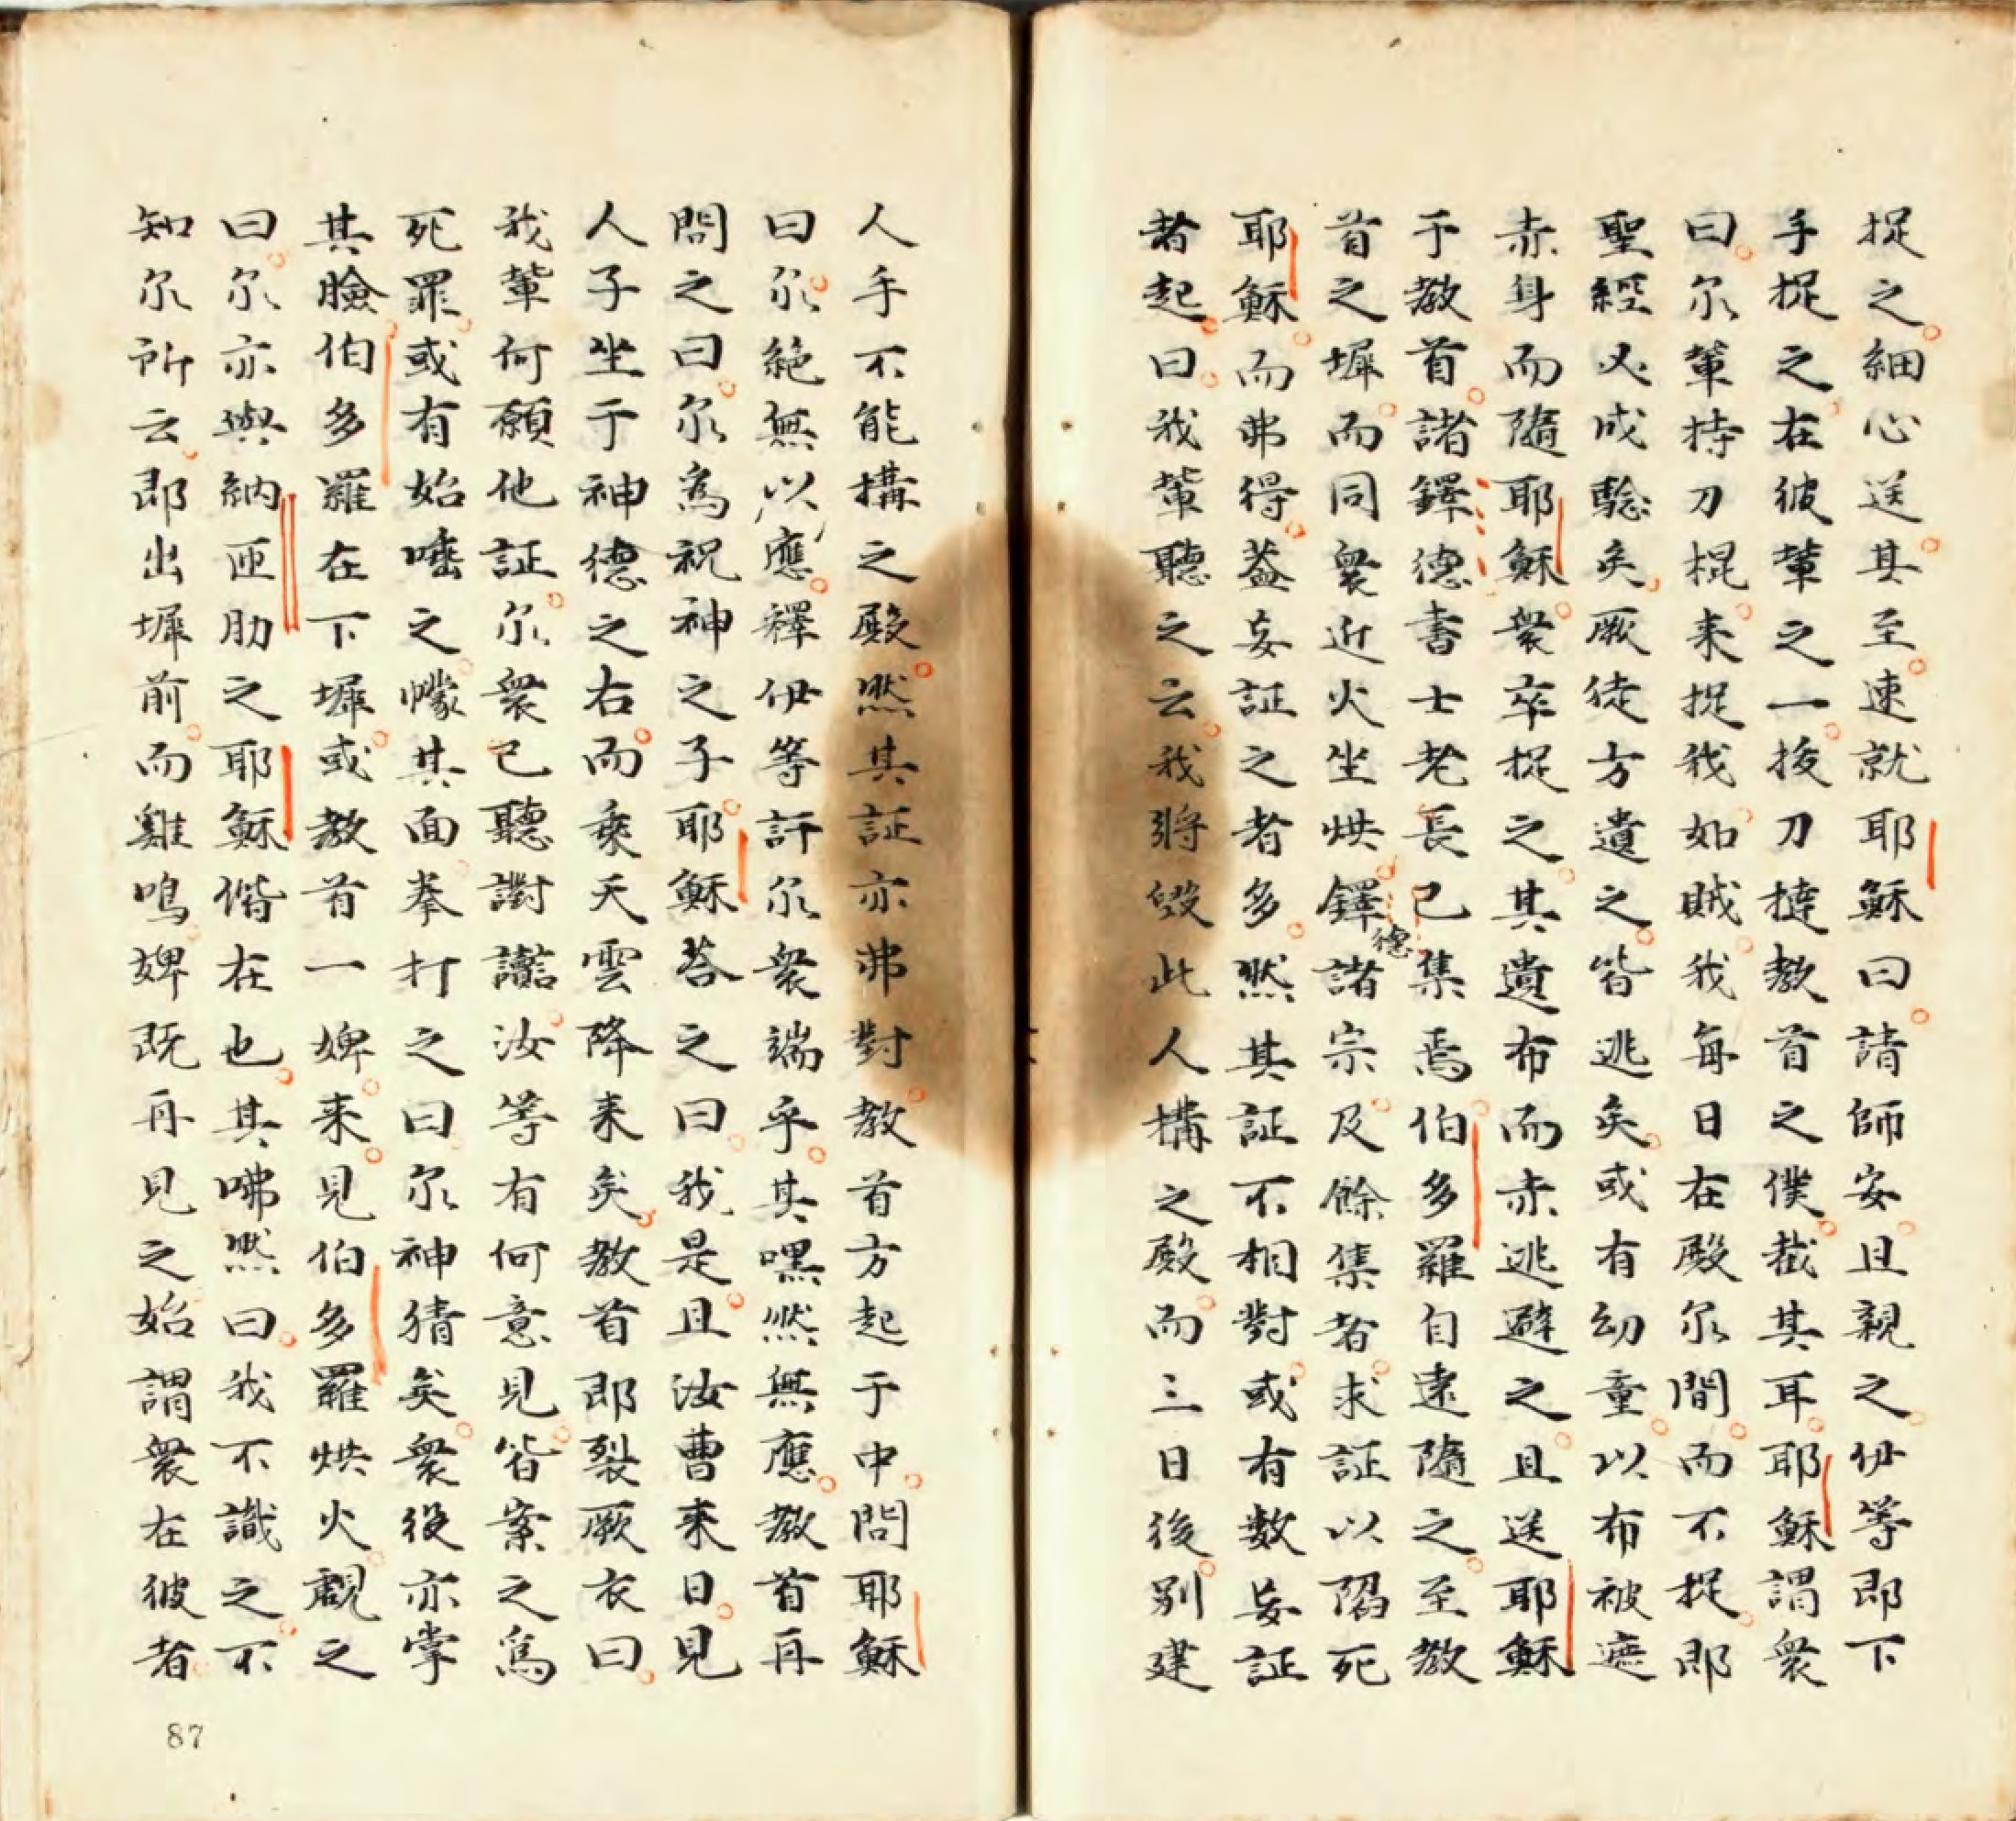 捉之細心送其至速就耶穌曰請師安且親之伊等即下
手捉之在彼軰之一拔刀撻教首之僕截其耳耶穌謂衆
曰尔軰持刀棍来捉我如賊我每日在殿尔間而不捉即
聖經必成騐矣厥徒方遺之皆逃矣或有幼童以布被遮
赤身而隨耶穌衆卒捉之其遺布而赤逃避之且送耶穌
于教首諸鐸德書士老長已集焉伯多羅自遠隨之至教
首之墀而同衆近火坐烘鐸德諸宗及餘集者求証以陷死
耶穌而弗得葢妄証之者多然其証不相對或有数妄証
者起曰我軰聽之云我將毀此人構之殿而三日後别建
人手不能構之殿然其証亦弗對教首方起于中問耶穌
曰尔絶無以應釋伊等訐尔衆端乎其嘿然無應教首再
問之曰尔為祝神之子耶穌荅之曰我是且汝曹来日見
人子坐于神德之右而乘天雲降来矣教首即裂厥衣曰
我軰何願他証尔衆已聽讟汝等有何意見皆案之為
死罪或有始唾之幪其面拳打之曰尔神猜矣衆役亦掌
其臉伯多羅在下墀或教首一婢来見伯多羅烘火覩之
曰尔亦與納匝肋之耶穌偕在也其咈然曰我不識之不
知尔所云即出墀前而雞鳴婢既再見之始謂衆在彼者
87